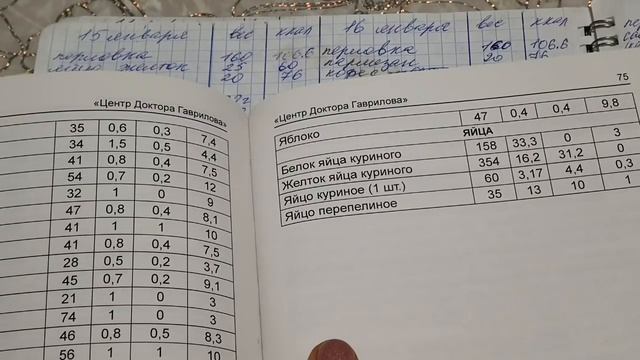 15 января вес ккал 16 января вес ккал
перловка 160 106.6 перловка 160 106.6
яйцо желток 25 60 пармезан 20 76
20 76
«Центр Доктора Гаврилова»
35 0,6 0,3 7,4
34 1,5 0,5 4,4
41 0,8 0,4 7,5
54 0,7 0,2 12
32 1 0 9
47 0,8 0,4 8,1
41 1 1 10
41 0,8 0,4 7,5
28 0,5 0,2 3,7
45 0,7 0,2 9,1
21 1 0 3
74 1 0 3
46 0,8 0,5 8,3
56 1 1 10
«Центр Доктора Гаврилова» 75
Яблоко 47 0,4 0,4 9,8
ЯЙЦА
Белок яйца куриного 158 33,3 0 3
Желток яйца куриного 354 16,2 31,2 0
Яйцо куриное (1 шт.) 60 3,17 4,4 0,3
Яйцо перепелиное 35 13 10 1